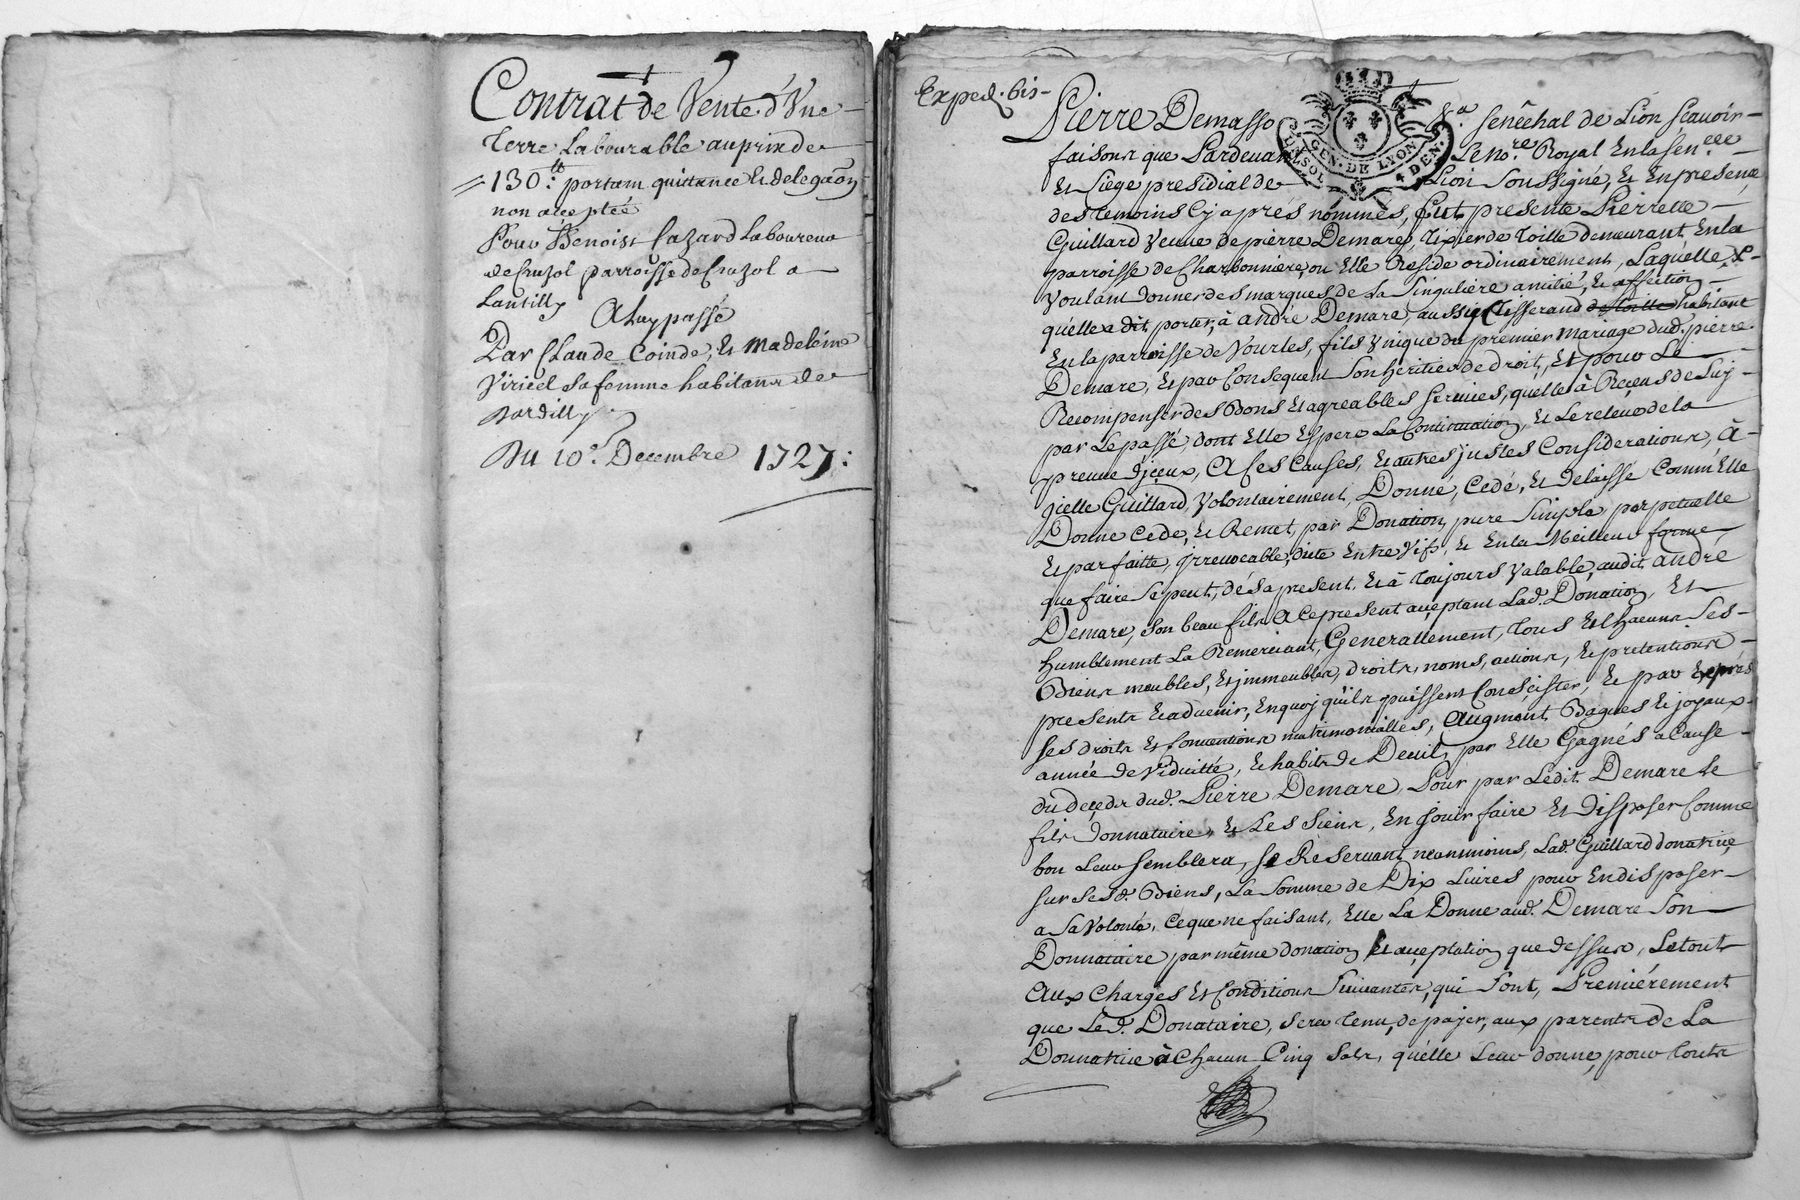 Contrat de Vente d'Vne
Terre Labourable au prix de
130:lt portant quittance et delegãon
non acceptée
Pour Benoist Cazard Laboureur
de Cruzol parroisse de Cruzol a
Lantilly
A luy passé
Par Claude Coinde, et Madeleine
Viricel sa femme habitans de
Dardilly
Du 10e. Decembre 1727:
Exped. bis
Pierre Demasso Sena. senêchal de Lion sçavoir
faisons que Pardeuant Le nore. Royal En la senceée
Et Siege presidial de Lion Soussigné, Et En presence
des temoins Cy après nommés, fut presente Pierrette
Guillard veuue de pierre Demare, tixier de toille demeurant En la
parroisse de Charbonniere, ou Elle Reside ordinairement, Laquelle
voulant donner des marques de La Singuliere amitié, et affection
quélle a dit, porter, à andré Demare, aussy tisserand de toille habitant
En la parroisse de Vourles, fils vnique du premier mariage dud. pierre
Demare, Et par Consequent Son heritier de droit, Et pour Le
Recompenser des Bons Et agreables seruices, quélle à Reçeus de Luy
par Le passé, dont Elle Espere La Continuation, Et Le releue de la
preuue d'jceux, A Ces Causes, Et autres justes Considerations, à
jcelle Guillard, volontairement, Donné, Cedé, Et Delaissé Comm'Elle
Donne Cede, Et Remet, par Donation, pure Simple, perpetuelle
Et parfaitte, jrreuocable, dite Entre Vifs, Et En la Meilleur forme
que faire Se peut, dés a present, Et à toujours Valable, audit andré
Demare, Son beau fils a Ce present acceptant Lad. Donation, Et
humblement La Remerciant, Generallement, tous Et Chacuns Ses
Biens meubles, Et jmmeubles, droits, noms, actions, Et pretentions
presents Et aduenir, En quoy quils puissent Consçister, Et par Exprés
ses droits Et Conuentions matrimonialles, Augment Bagues Et joyaux
année de Viduitté, Et habits de Deuil, par Elle Gagnés a Cause
du deçeds dud. Pierre Demare, Pour par Ledit Demare Le
fils Donnataire, Et Les Siens, En jouir faire Et Disposer Comme
bon Leur Semblera, se Reseruant neanmoins, Lad. Guillard donatrice
sur Sesd. Biens, La Somme de Dix Liures pour En disposer
a Sa Volonté, Ce que ne faisant, Elle La Donne aud. Demare Son
Donnataire par même donation Et acceptation que dessus, Le tout
Aux Charges Et Conditions Suiuantes, qui Sont, Premiérement
que Led. Donataire, sera tenu, de payer, aux parents de La
Donnatrice à Chacun Cinq Sols, quélle Leur donne, pour touts
GEN. DE LYON
4 DEN.